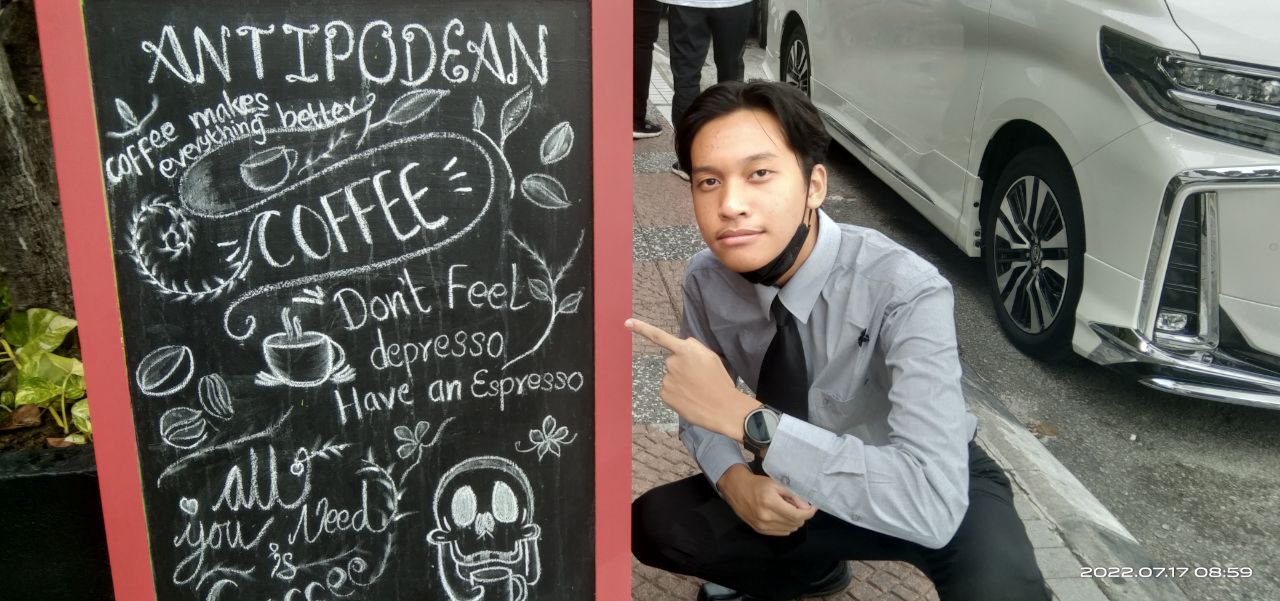 ANTIPODEAN
coffee makes
everything better
COFFEE
Don't Feel
depresso
Have an Espresso
all
you Need
is
Coffee
2022.07.17 08:59